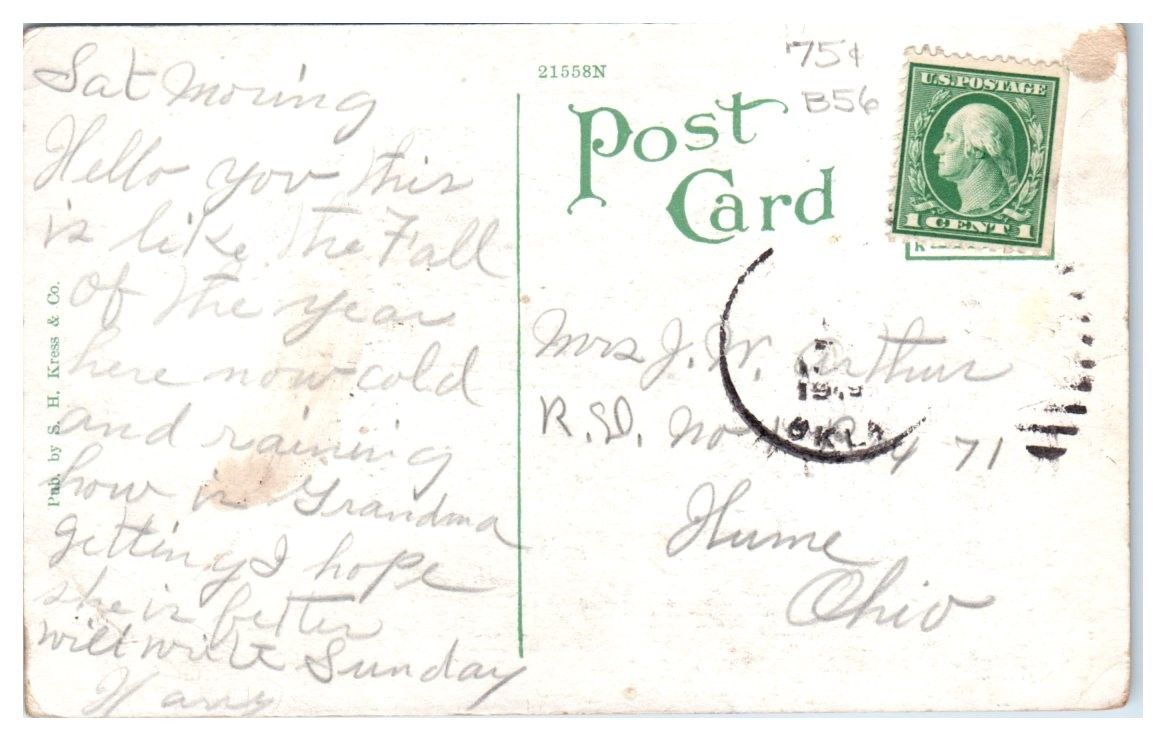 Sat Moring
Hello you this
is like the Fall
of the year
here now cold
and raining
how is Grandma
getting I hope
she is better
will write Sunday
Harry
Pub. by S. H. Kress & Co.
21558N
75¢
B56
Post
Card
U.S. POSTAGE
1 CENT 1
OKLA
Mrs J. W. Arthur
R.D. No 71
Hume
Ohio